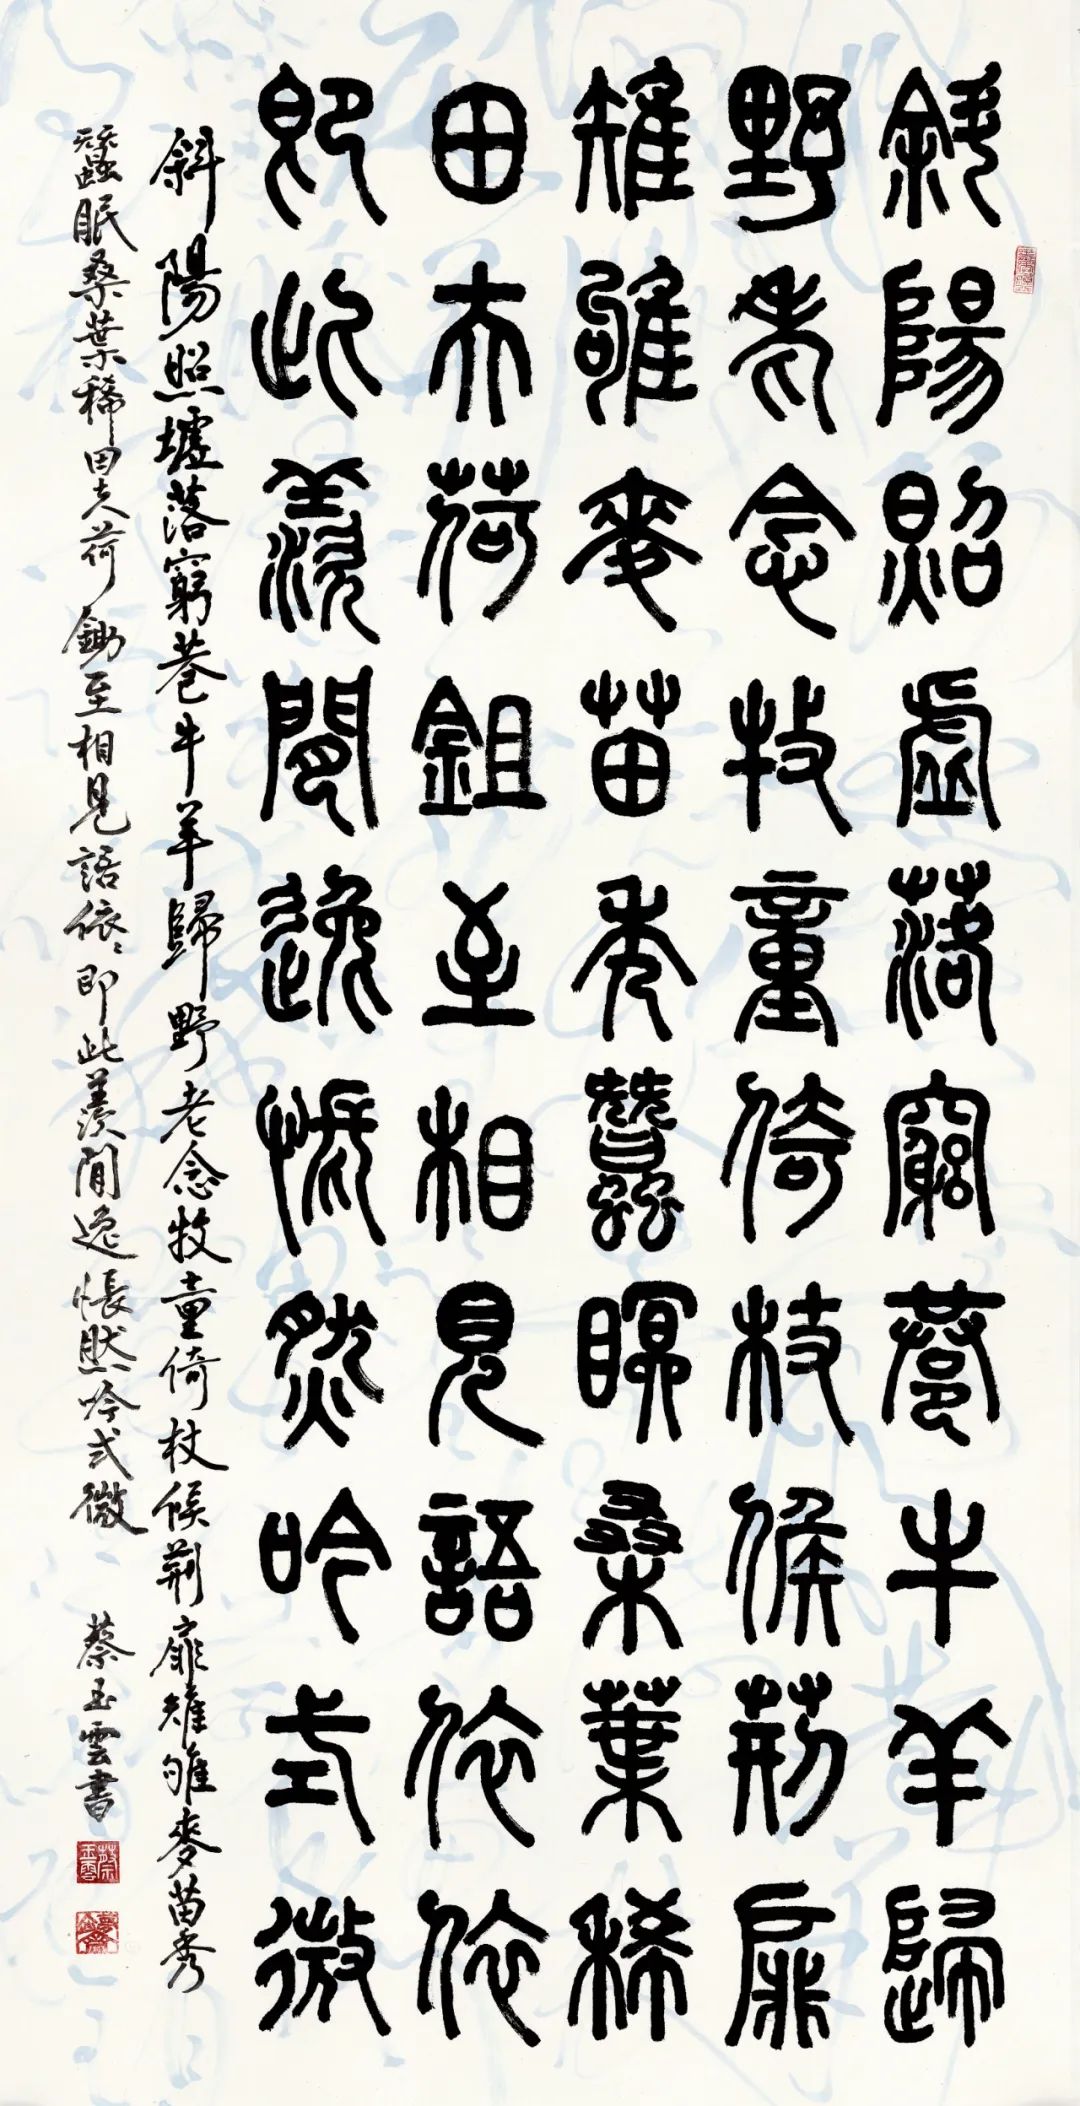 斜陽照虛落窮巷牛羊歸
野老念牧童倚杖候荊扉
雉雊麥苗秀蠶眠桑葉稀
田夫荷鉏至相見語依依
即此羨閒逸悵然吟式微
斜陽照墟落窮巷牛羊歸野老念牧童倚杖候荊扉雉雊麥苗秀
蠶眠桑葉稀田夫荷鋤至相見語依〻即此羨閒逸悵然吟式微 蔡玉雲書